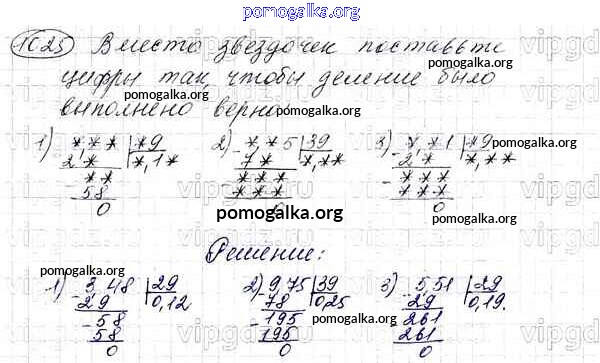 pomogalka.org
1025 Вместо звездочек поставьте
цифры так, чтобы деление было
выполнено верно.
pomogalka.org
pomogalka.org
1) *,** | *9
2* | *,1*
**
58
0
2) *,*5 | 39
7* | *,**
***
***
0
3) *,*1 | *9
2* | *,**
***
***
0
pomogalka.org
pomogalka.org
pomogalka.org
Решение:
pomogalka.org
1) 3,48 | 29
29 | 0,12
58
58
0
2) 9,75 | 39
78 | 0,25
195
195
0
3) 5,51 | 29
29 | 0,19.
261
261
0
pomogalka.org
pomogalka.org